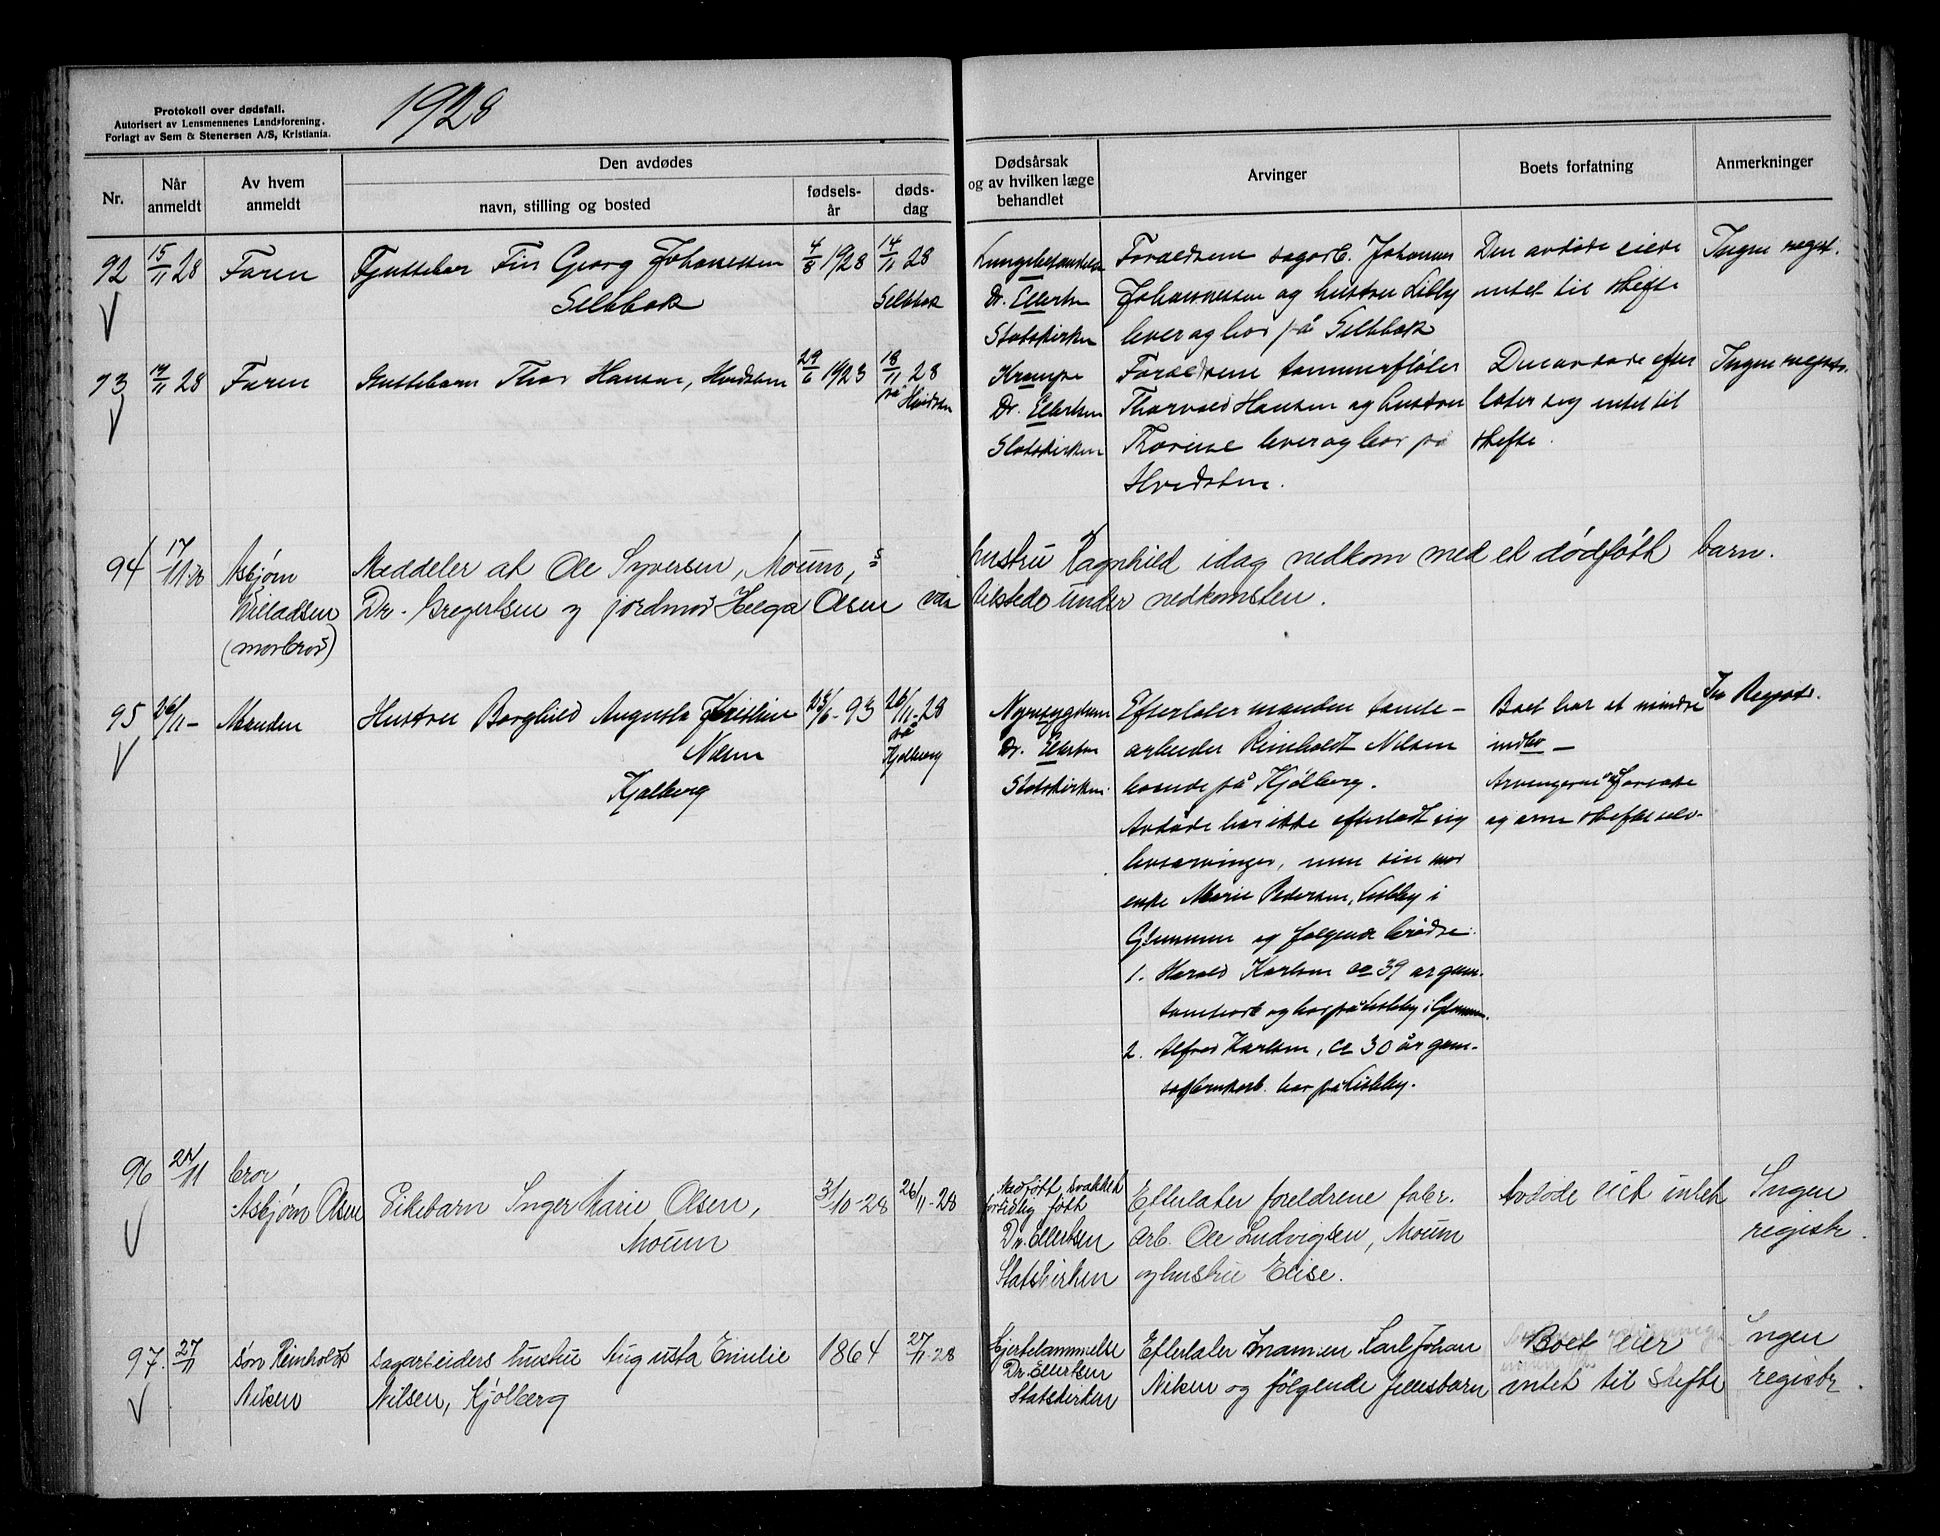 Protokoll over dødsfall.
Autorisert av Lensmennenes Landsforening.
Forlagt av Sem & Stenersen A/S, Kristiania.
1928
Nr.
Når anmeldt
Av hvem anmeldt
Den avdødes
navn, stilling og bosted
fødsels-år
døds-dag
Dødsårsak og av hvilken læge behandlet
Arvinger
Boets forfatning
Anmerkninger
92 15/11 28 Faren Gutteban Fin Georg Johanessen 4/8 1928 14/11 28
Selbak Selbak
Dr. Ellertsen
Statskirken
Foraeldrene sagarb. Johannes
Johannessen og hustru Lilly
lever og bor på Selbak
Den avdøde eiede
intet til skifte
Ingen regist.
93 28 Faren Guttebarn Thor Hansen, Hvidsten 29/6 1923 18/11 28
på Hvidsten
Krampe
Dr. Ellertsen
Statskirken
Foraeldrene tømmerfløter
Thorvald Hansen og hustru
Thorine lever og bor på
Hvidsten.
Den avdøde efter
later sig intet til
skifte.
Ingen registr.
94 17/11 28 Asbjørn
Willadsen
(morbror)
Meddeler at Ole Syversen, Moum, s hustru Ragnhild idag nedkom med et dødføtt barn.
Dr. Gregertsen og jordmor Helga Olsen var tilstede under nedkomsten.
95 26/11 - Manden Hustru Borghild Augusta Kristine 23/6-93 26/11-28
Nilsen på
Kjølberg Kjølberg
Nyresygdom
Dr. Ellertsen
Statskirken.
Efterlater manden tomte-
arbeider Reinholdt Nilsen
boende på Kjølberg.
Avdøde har ikke efterladt sig
livsarvinger, men sin mor
enke Marie Pedersen, Lisleby i
Glemmen og følgende brødre:
1. Harald Karlsen ca 39 år gam.
tomtearb og bor på Lisleby i Glemmen.
2. Alfred Karlsen, ca 30 år gam-
sagbruksarb. bor på Lisleby.
Boet har et mindre
indbo -
Arvingerne
og arve skifte selv.
In Registr.
96 11 bror
Asbjørn Olsen Pikebarn Inger Marie Olsen, 31/10-28 26/11-28
Moum
Medfødt svakhet
fortidlig født
Dr. Ellertsen
Statskirken
Efterlater foreldrene fabr.
arb. Ole Ludvigsen, Moum
og hustru Elise.
Avdøde eiet intet
Ingen
registr.
97. 27/11 sønn Reinholdt
Nilsen
sagarbeiders hustru Augusta Emilie 1864 27/11-28
Nilsen, Kjølberg
Hjertelammelse
Dr. Ellertsen
Statskirken
Efterlater mannen Carl Johan
Nilsen og følgende fellesbarn
Boet eier
intet til skifte
Ingen
registr.